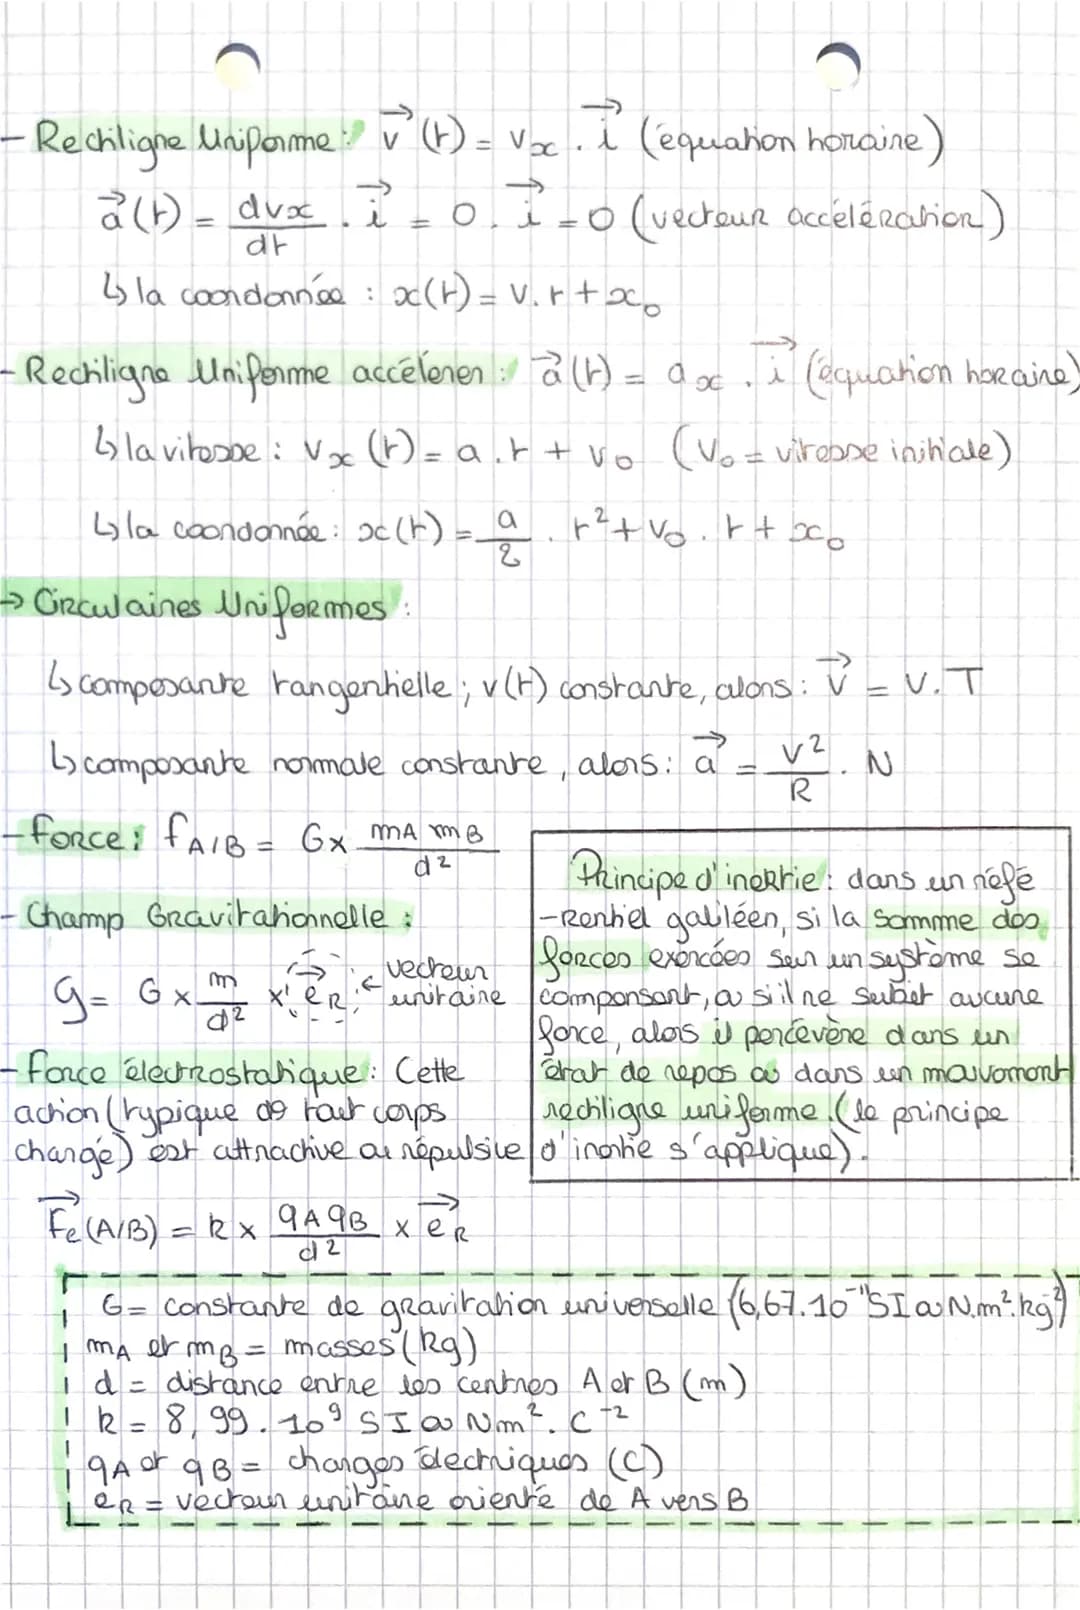 - Rectiligne Uniforme : v⃗ (t) = vx . i⃗ (équation horaire)
a⃗ (t) = dvx/dt . i⃗ = 0 . i⃗ = 0 (vecteur accélération)
↳ la coordonnée : x(t) = v. t + x₀
- Rectiligne Uniforme accélerer : a⃗ (t) = ax . i⃗ (équation horaire)
↳ la vitesse : vx (t) = a . t + v₀ (v₀ = vitesse initiale)
↳ la coordonnée : x(t) = a/2 . t² + v₀ . t + x₀
→ Circulaires Uniformes :
↳ composante tangentielle ; v(t) constante, alors : v⃗ = v . T
↳ composante normale constante, alors : a⃗ = v²/R . N
- Force : fA/B = G x mA mB/d²
- Champ Gravitationnelle :
g = G x m/d² x e⃗R ← vecteur
unitaire
- Force électrostatique : Cette
action (typique de tout corps
chargé) est attractive ou répulsive
Principe d'inertie : dans un réfé
-rentiel galiléen, si la somme des
forces exercées sur un système se
compensent, ou si il ne subit aucune
force, alors il percévère dans un
état de repos ou dans un mouvement
rectiligne uniforme. (le principe
d'inertie s'applique).
F⃗e (A/B) = k x qA qB/d² x e⃗R
G = constante de gravitation universelle (6,67.10⁻¹¹ SI ou N.m².kg²)
mA et mB = masses (kg)
d = distance entre les centres A et B (m)
k = 8,99 . 10⁹ SI ou Nm² . C⁻²
qA et qB = charges électriques (C)
eR = vecteur unitaire orienté de A vers B